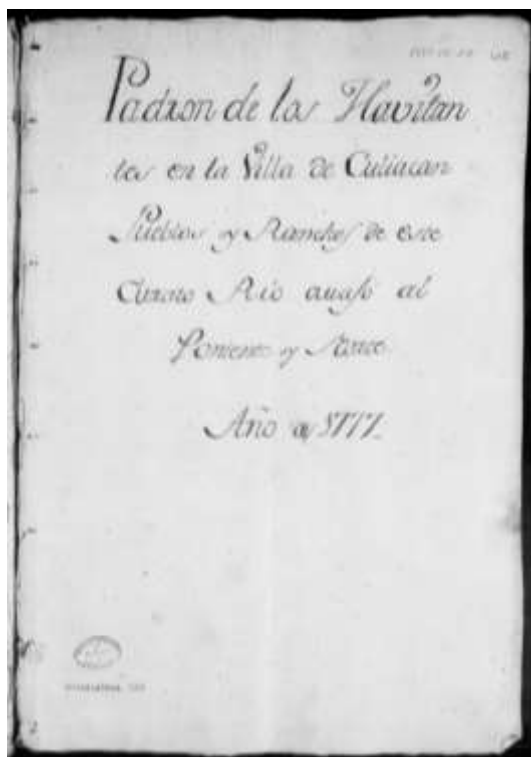 Padron de los Havitan
tes en la Villa de Culiacan
Pueblos y Ranchos de este
Curato Rio avajo al
Poniente y Norte
Año de 1777.